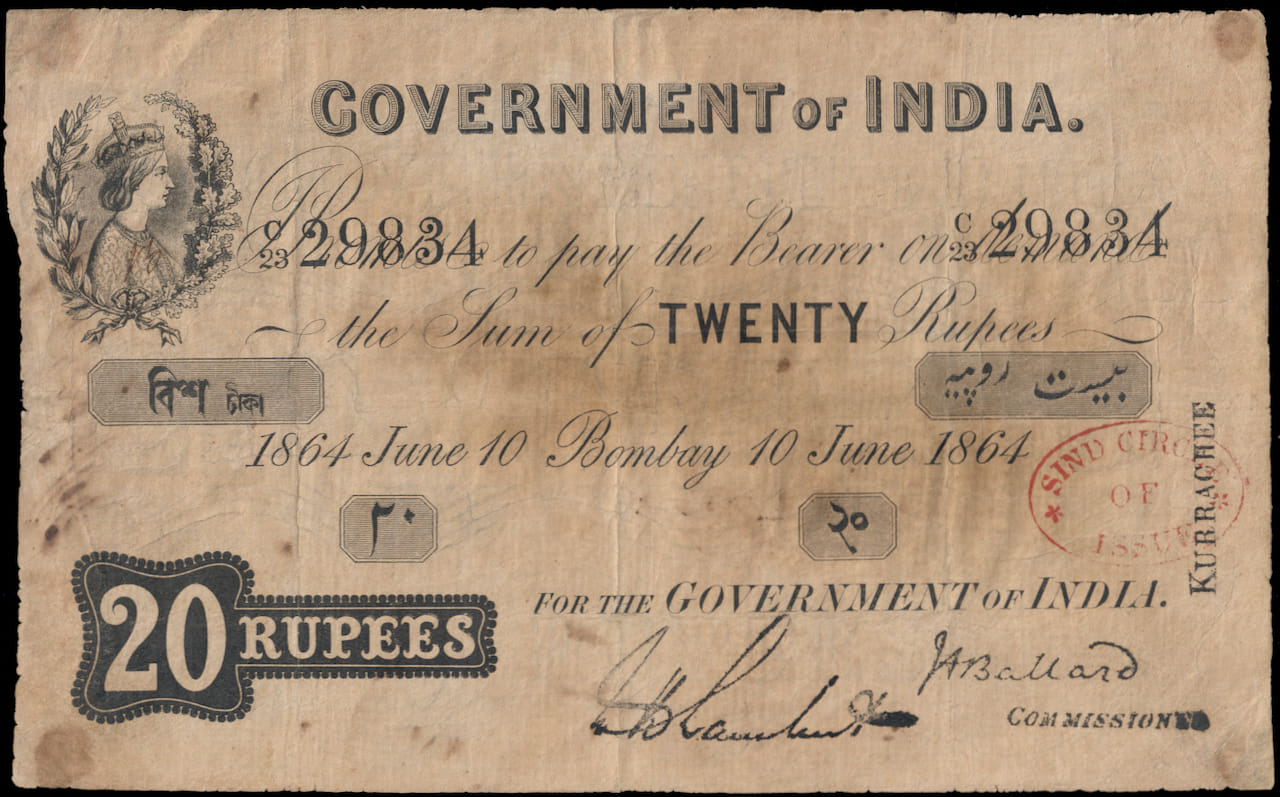 GOVERNMENT OF INDIA.
C 23 29834
C 23 29834
to pay the Bearer on demand
the Sum of TWENTY Rupees
বিশ টাকা
بیست روپیہ
1864 June 10 Bombay 10 June 1864
SIND CIRCLE
OF
ISSUE
KURRACHEE
۲۰
२०
20 RUPEES
FOR THE GOVERNMENT OF INDIA.
JABallard
COMMISSIONER